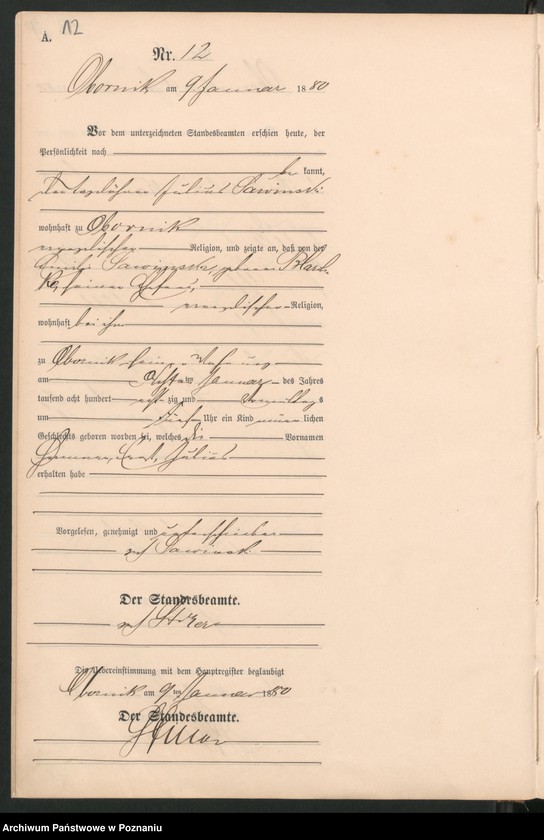 A.
12
Nr. 12
Obornik am 9 Januar 1880
Vor dem unterzeichneten Standesbeamten erschien heute, der
Persönlichkeit nach
be kannt,
der Tagelöhner Julius Sawinski
wohnhaft zu Obornik
evangelischer Religion, und zeigte an, daß von der
Sawinski, geborene
seiner Ehefrau,
evangelischer Religion,
wohnhaft bei ihm
zu Obornik in seiner Wohnung
am Achten Januar des Jahres
tausend acht hundert acht zig und Vormittags
um fünf Uhr ein Kind männ lichen
Geschlechts geboren worden sei, welches die Vornamen
Julius
erhalten habe
Vorgelesen, genehmigt und unterschrieben
Sawinski
Der Standesbeamte.
Die Uebereinstimmung mit dem Hauptregister beglaubigt
Obornik am 9ten Januar 1880
Der Standesbeamte.
Archiwum Państwowe w Poznaniu
www.szukajwarchiwach.pl